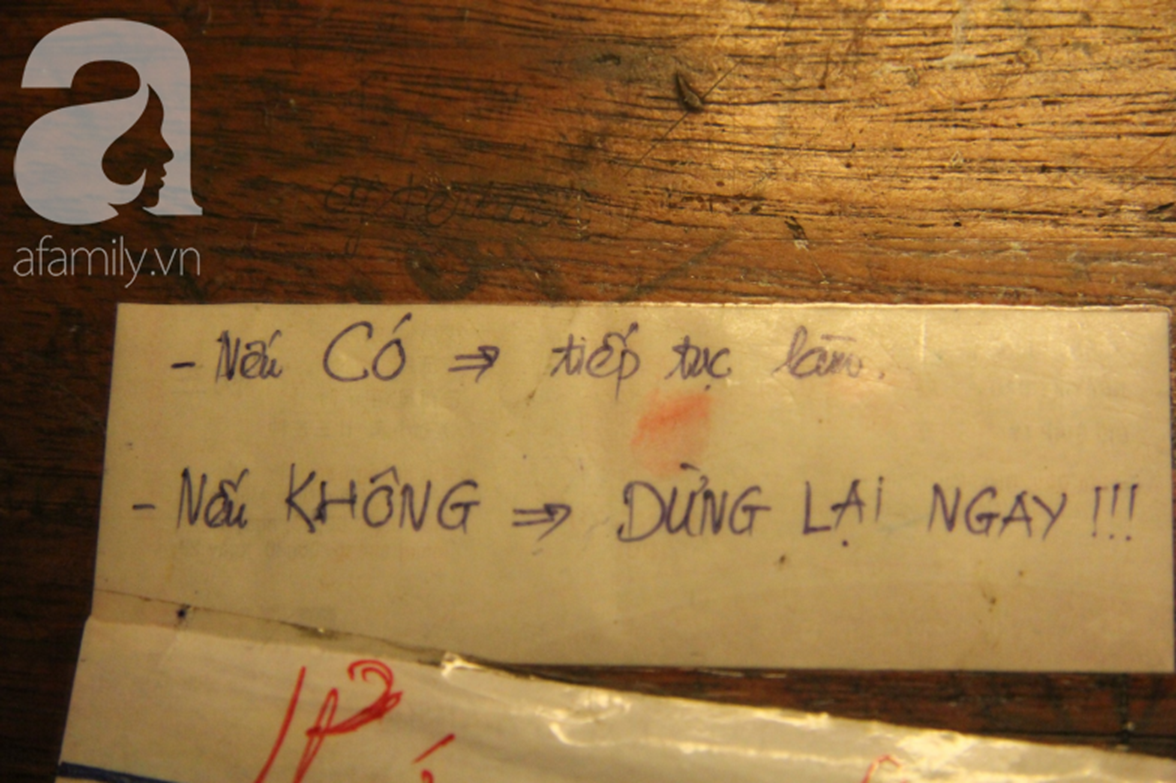 a
afamily.vn
- Nếu CÓ ⇒ tiếp tục làm.
- Nếu KHÔNG ⇒ DỪNG LẠI NGAY !!!